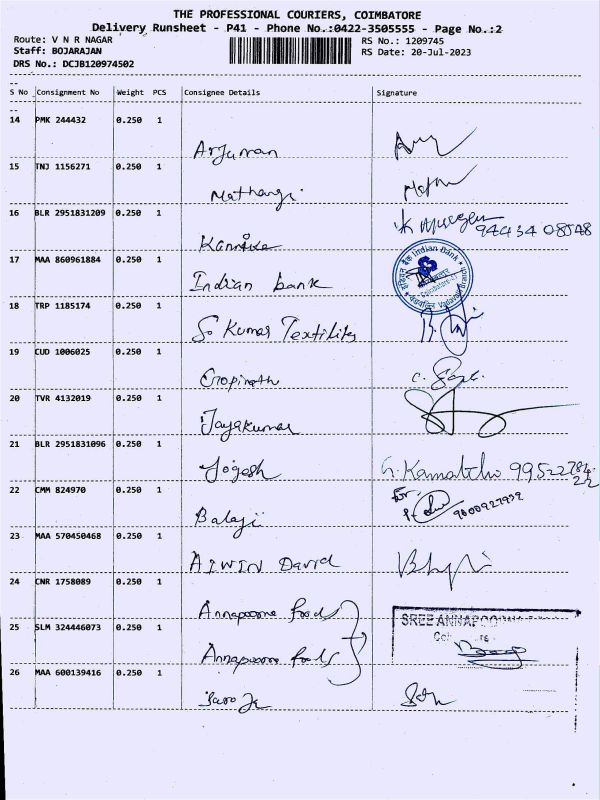 THE PROFESSIONAL COURIERS, COIMBATORE
Delivery Runsheet - P41 - Phone No.:0422-3505555 - Page No.:2
Route: V N R NAGAR
RS No.: 1209745
Staff: BOJARAJAN
RS Date: 20-Jul-2023
DRS No.: DCJB120974502
S No Consignment No Weight PCS Consignee Details Signature
14 PMK 244432 0.250 1 Arjunan
15 TNJ 1156271 0.250 1 Mathangi
16 BLR 2951831209 0.250 1 Kannika K Murugan
94434 08548
17 MAA 860961884 0.250 1 Indian bank Indian Bank
18 TRP 1185174 0.250 1 Kumar Textiles
19 CUD 1006025 0.250 1 Gopinath
20 TVR 4132019 0.250 1 Jayakumar
21 BLR 2951831096 0.250 1 Yogesh
22 CMM 824970 0.250 1 Balaji for
23 MAA 570450468 0.250 1 David
24 CNR 1758089 0.250 1 Annapoorna foods
25 SLM 324446073 0.250 1 Annapoorna foods SREE
26 MAA 600139416 0.250 1